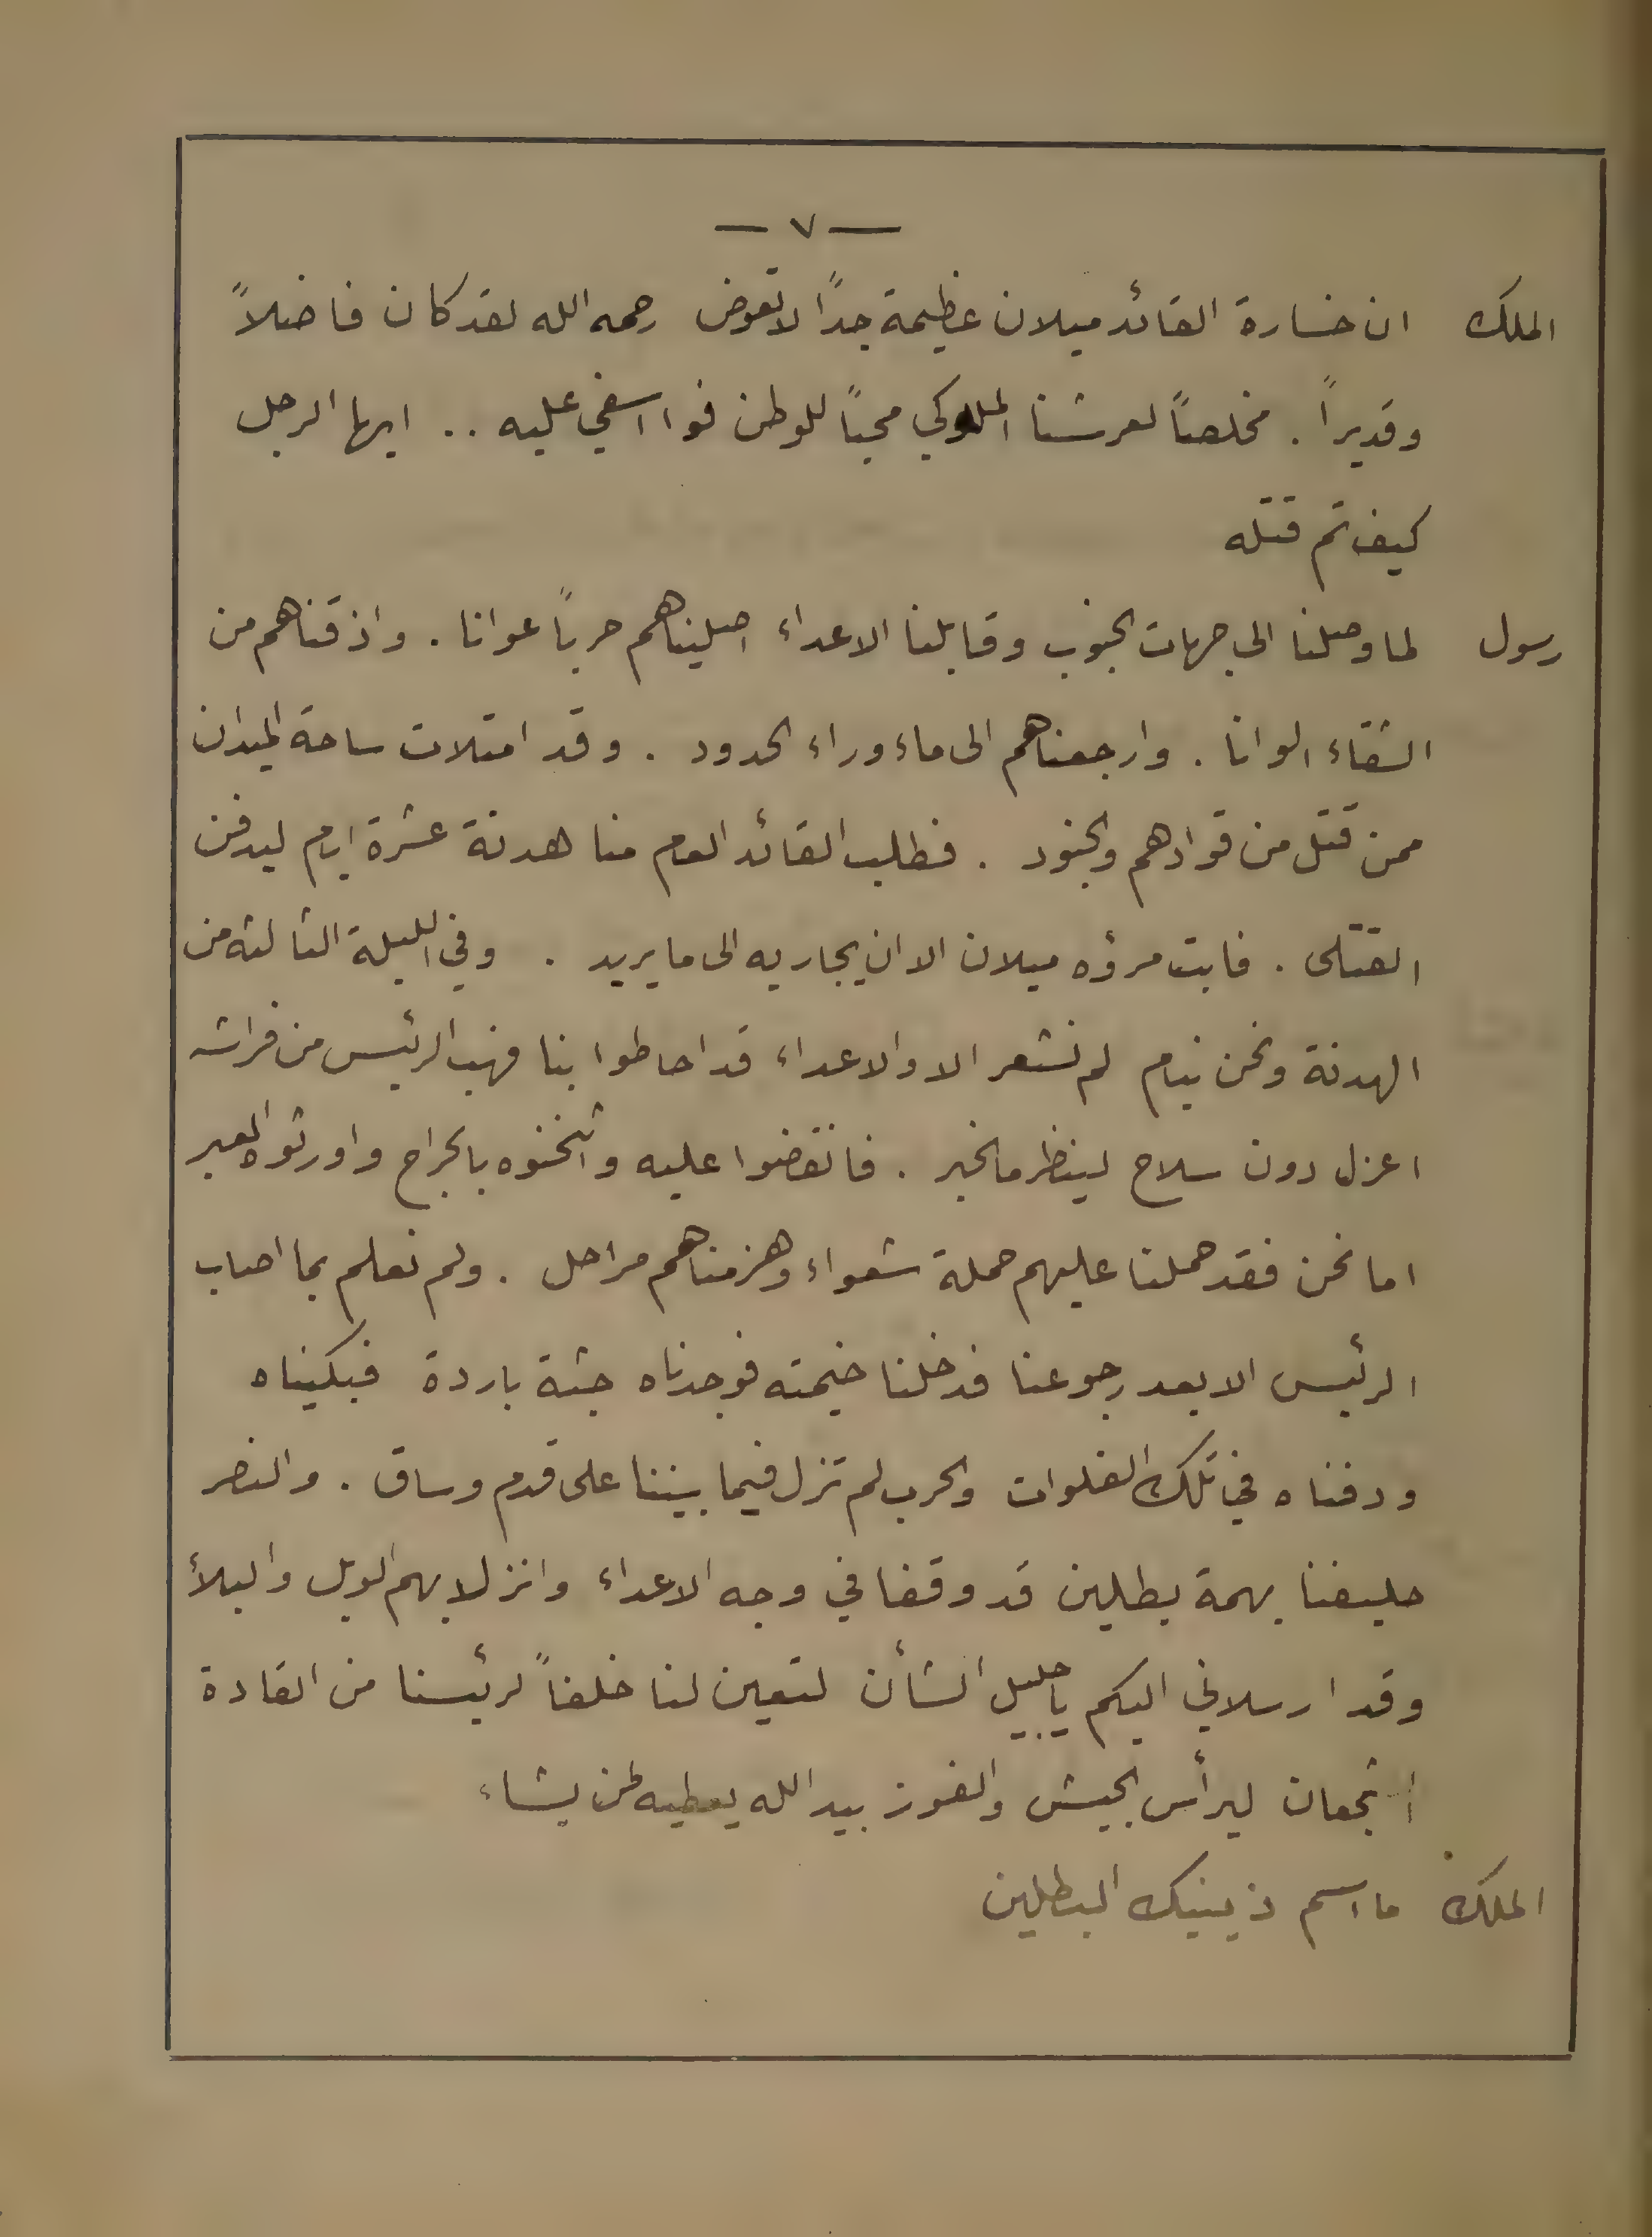 — ٧ —
الملك ان خسارة القائد ميلان عظيمة جداً لا تعوض رحمه الله لقد كان فاضلاً
وقديراً . مخلصاً لعرشنا الملوكي محباً للوطن فوا اسفي عليه .. ايها الرجل
كيف تم قتله
رسول لما وصلنا الى جهات الجنوب وقابلنا الاعداء اصليناهم حرباً عوانا . واذقناهم من
الشقاء الوانا . وارجعناهم الى ماء وراء الحدود . وقد امتلات ساحة الميدان
ممن قتل من قوادهم والجنود . فطلب القائد العام منا هدنة عشرة ايام ليدفن
القتلى . فابت مرؤه ميلان الا ان يجاريه الى ما يريد . وفي الليلة الثالثه من
الهدنة ونحن نيام لم نشعر الا والاعداء قد احاطوا بنا فهب الرئيس من فراشه
اعزل دون سلاح لينظر مالخبر . فانقضوا عليه واثخنوه بالجراح واورثوه العبر
اما نحن فقد حملنا عليهم حملة شعواء وهزمناهم مراحل . ولم نعلم بما اصاب
الرئيس الا بعد رجوعنا فدخلنا خيمته فوجدناه جثة باردة فبكيناه
ودفناه في تلك الفلوات والحرب لم تزل فيما بيننا على قدم وساق . والنصر
حليفنا بهمة بطلين قد وقفا في وجه الاعداء وانزلا بهم الويل والبلأ
وقد ارسلاني اليكم يا جليل الشأن لتعين لنا خلفاً لرئيسنا من القادة
الشجعان ليرأس الجيش والفوز بيد الله يعطيه لمن يشاء
الملك ما اسم ذينيك البطلين